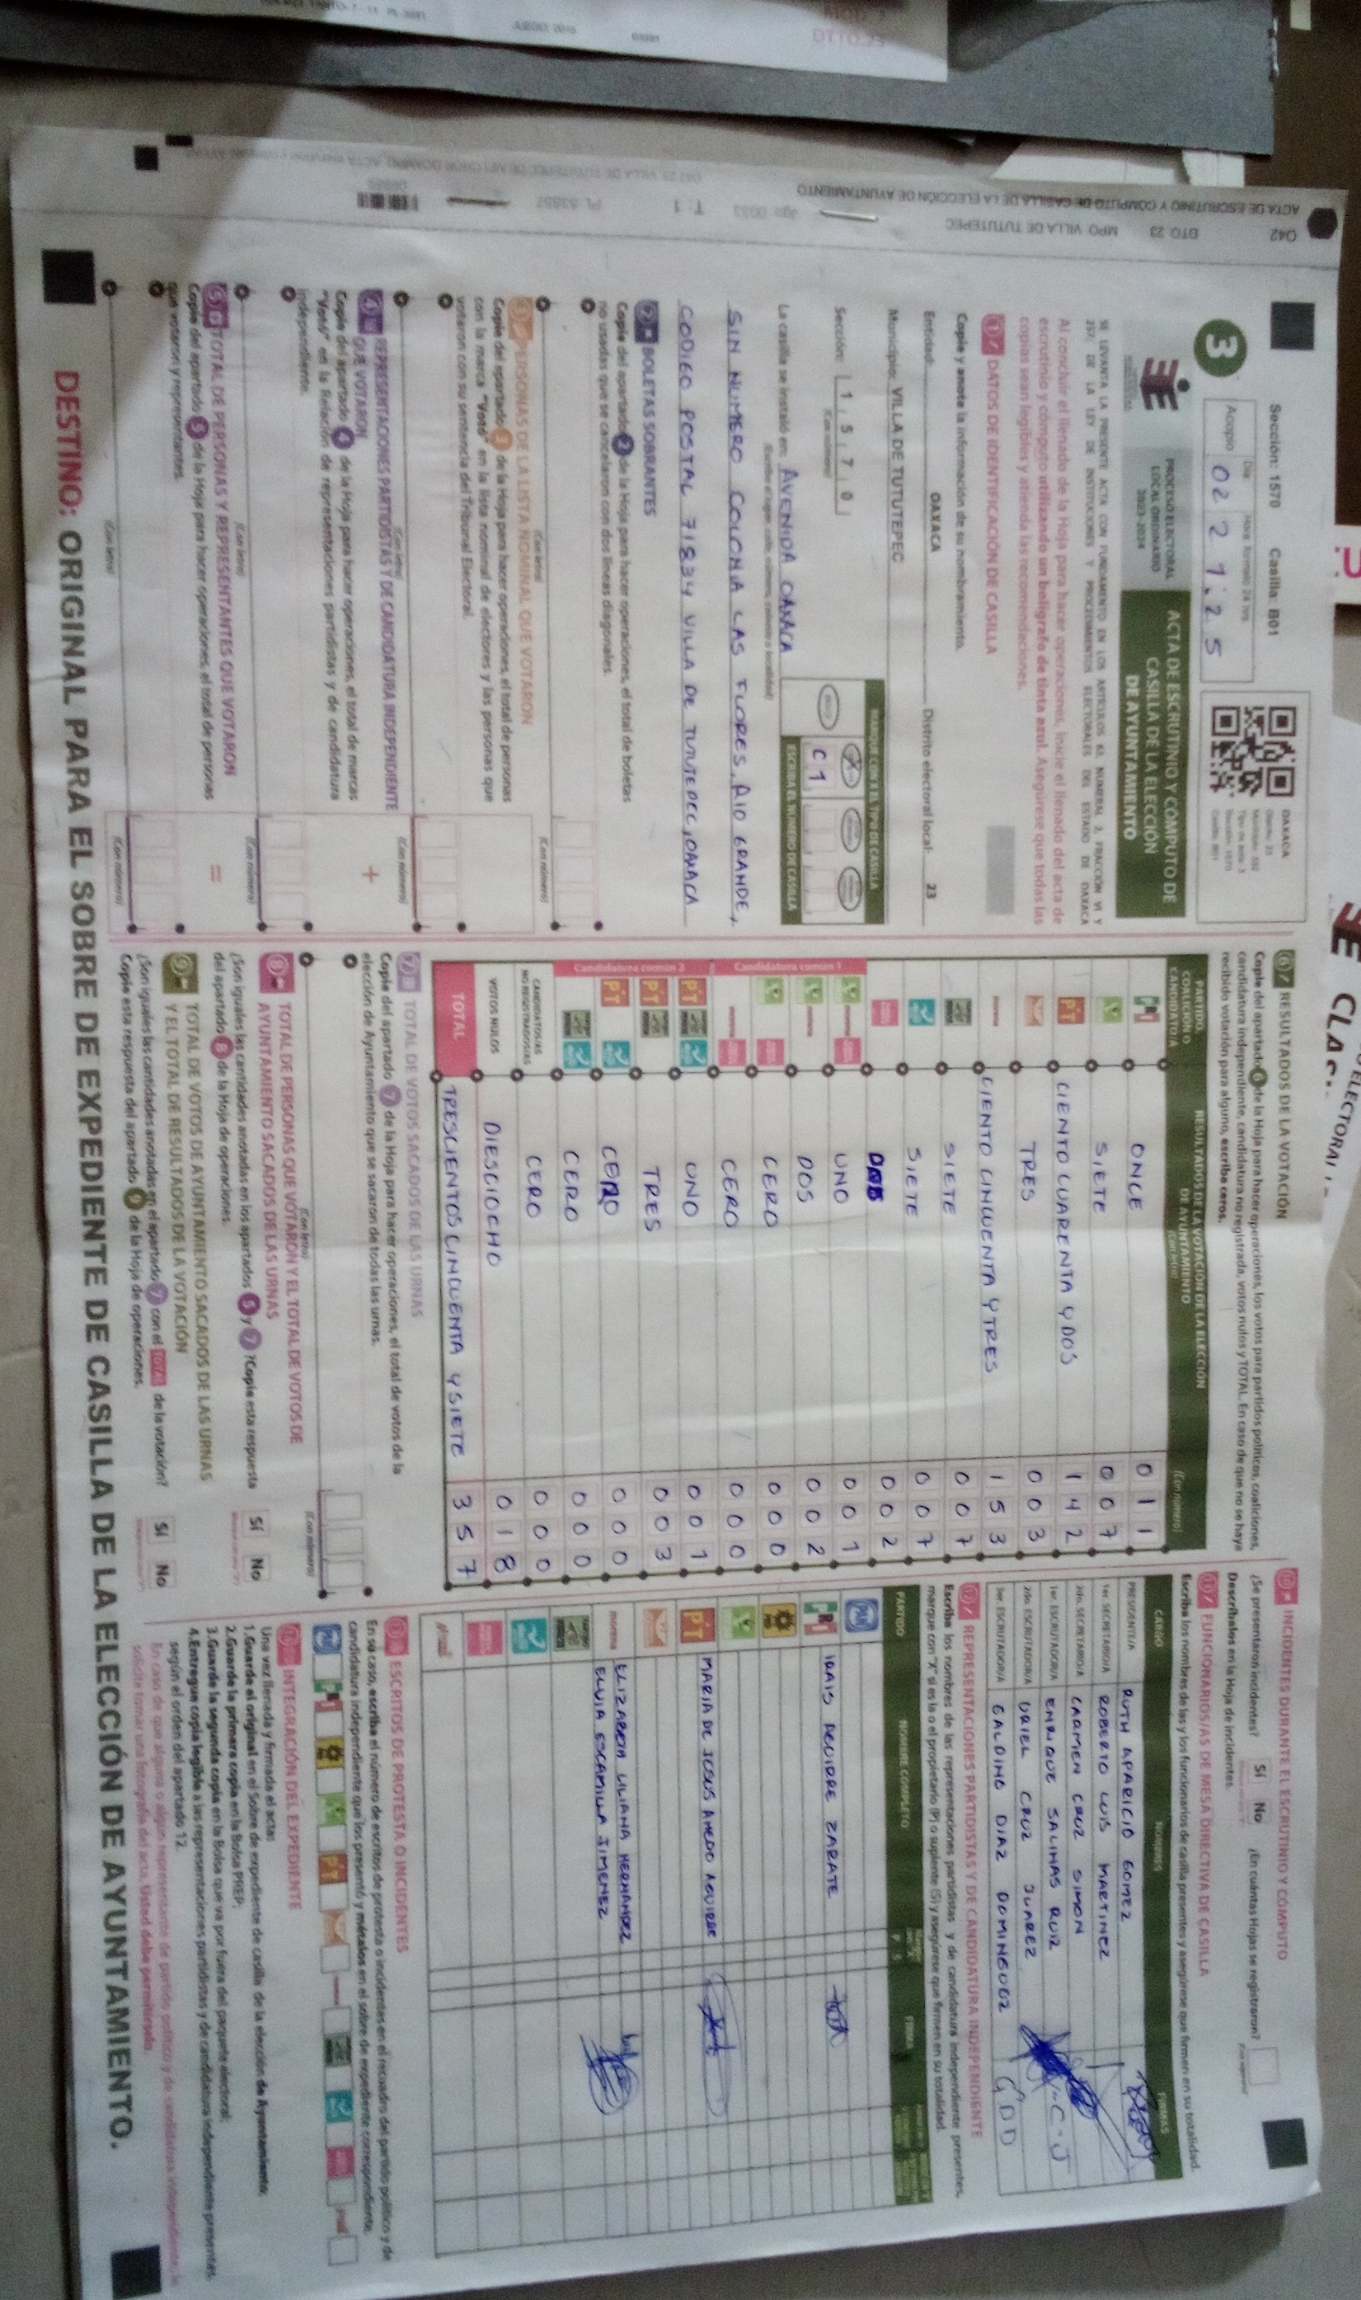 Sección: 1570 Casilla: B01
Acopio 02 21:25
3
OAXACA
PROCESO ELECTORAL
LOCAL ORDINARIO
2023-2024
ACTA DE ESCRUTINIO Y CÓMPUTO DE
CASILLA DE LA ELECCIÓN
DE AYUNTAMIENTO
Al concluir el llenado de la Hoja para hacer operaciones, inicie el llenado del acta de
escrutinio y cómputo utilizando un bolígrafo de tinta azul. Asegúrese que todas las
copias sean legibles y atienda las recomendaciones.
1 DATOS DE IDENTIFICACIÓN DE CASILLA
Copie y anote la información de su nombramiento.
Entidad: OAXACA Distrito electoral local: 23
Municipio: VILLA DE TUTUTEPEC
Sección: 1 5 7 0
MARQUE CON X EL TIPO DE CASILLA
C 1
ESCRIBA EL NÚMERO DE CASILLA
La casilla se instaló en: AVENIDA OAXACA
SIN NUMERO COLONIA LAS FLORES, RIO GRANDE,
CODIGO POSTAL 71834 VILLA DE TUTUTEPEC, OAXACA
2 BOLETAS SOBRANTES
Copie del apartado 2 de la Hoja para hacer operaciones, el total de boletas
no usadas que se cancelaron con dos líneas diagonales.
(Con letra) (Con número)
3 PERSONAS DE LA LISTA NOMINAL QUE VOTARON
Copie del apartado 3 de la Hoja para hacer operaciones, el total de personas
con la marca "Votó" en la lista nominal de electores y las personas que
votaron con su sentencia del Tribunal Electoral.
(Con letra) (Con número)
4 REPRESENTACIONES PARTIDISTAS Y DE CANDIDATURA INDEPENDIENTE
QUE VOTARON
Copie del apartado 4 de la Hoja para hacer operaciones, el total de marcas
"Votó" en la Relación de representaciones partidistas y de candidatura
independiente.
(Con letra) (Con número)
5 TOTAL DE PERSONAS Y REPRESENTANTES QUE VOTARON
Copie del apartado 5 de la Hoja para hacer operaciones, el total de personas
que votaron y representantes.
(Con letra) (Con número)
6 RESULTADOS DE LA VOTACIÓN
Copie del apartado 6 de la Hoja para hacer operaciones, los votos para partidos políticos, coaliciones,
candidatura independiente, candidatura no registrada, votos nulos y TOTAL. En caso de que no se haya
recibido votación para alguno, escriba ceros.
PARTIDO, COALICIÓN O CANDIDATO/A
RESULTADOS DE LA VOTACIÓN DE LA ELECCIÓN
DE AYUNTAMIENTO
(Con letra) (Con número)
PRI ONCE 0 1 1
SIETE 0 0 7
PT CIENTO CUARENTA Y DOS 1 4 2
TRES 0 0 3
CIENTO CINCUENTA Y TRES 1 5 3
SIETE 0 0 7
SIETE 0 0 7
0 0 2
Candidatura común 1
UNO 0 0 1
DOS 0 0 2
CERO 0 0 0
CERO 0 0 0
Candidatura común 2
PT UNO 0 0 1
PT TRES 0 0 3
PT CERO 0 0 0
CERO 0 0 0
CANDIDATOS/AS NO REGISTRADOS/AS CERO 0 0 0
VOTOS NULOS DIESCIOCHO 0 1 8
TOTAL TRESCIENTOS CINCUENTA Y SIETE 3 5 7
7 TOTAL DE VOTOS SACADOS DE LAS URNAS
Copie del apartado 7 de la Hoja para hacer operaciones, el total de votos de la
elección de Ayuntamiento que se sacaron de todas las urnas.
(Con letra) (Con número)
8 TOTAL DE PERSONAS QUE VOTARON Y EL TOTAL DE VOTOS DE
AYUNTAMIENTO SACADOS DE LAS URNAS
¿Son iguales las cantidades anotadas en los apartados 5 y 7? Copie esta respuesta
del apartado 8 de la Hoja de operaciones.
Sí No
9 TOTAL DE VOTOS DE AYUNTAMIENTO SACADOS DE LAS URNAS
Y EL TOTAL DE RESULTADOS DE LA VOTACIÓN
¿Son iguales las cantidades anotadas en el apartado 7 con el TOTAL de la votación?
Copie esta respuesta del apartado 9 de la Hoja de operaciones.
Sí No
10 INCIDENTES DURANTE EL ESCRUTINIO Y CÓMPUTO
¿Se presentaron incidentes? Sí No ¿En cuántas Hojas se registraron?
Descríbalos en la Hoja de incidentes.
11 FUNCIONARIOS/AS DE MESA DIRECTIVA DE CASILLA
Escriba los nombres de las y los funcionarios de casilla presentes y asegúrese que firmen en su totalidad.
CARGO NOMBRES FIRMAS
PRESIDENTE/A RUTH APARICIO GOMEZ
1er. SECRETARIO/A ROBERTO LUIS MARTINEZ
2do. SECRETARIO/A CARMEN CRUZ SIMON
1er. ESCRUTADOR/A ENRIQUE SALINAS RUIZ
2do. ESCRUTADOR/A URIEL CRUZ JUAREZ
3er. ESCRUTADOR/A GALDINO DIAZ DOMINGUEZ GDD
12 REPRESENTACIONES PARTIDISTAS Y DE CANDIDATURA INDEPENDIENTE
Escriba los nombres de las representaciones partidistas y de candidatura independiente presentes,
marque con "X" si es la o el propietario (P) o suplente (S) y asegúrese que firmen en su totalidad.
PARTIDO NOMBRE COMPLETO FIRMA
PAN
PRI IRAIS AGUIRRE ZARATE
PRD
PT MARIA DE JESUS AMEDO AGUIRRE
morena ELIZABETH LILIANA HERNANDEZ
ELUIA ESCAMILLA JIMENEZ
13 ESCRITOS DE PROTESTA O INCIDENTES
En su caso, escriba el número de escritos de protesta o incidentes en el recuadro del partido político y de
candidatura independiente que los presentó y métalos en el sobre de expediente correspondiente.
14 INTEGRACIÓN DEL EXPEDIENTE
Una vez llenada y firmada el acta:
1.Guarde el original en el Sobre de expediente de casilla de la elección de Ayuntamiento.
2.Guarde la primera copia en la Bolsa PREP.
3.Guarde la segunda copia en la Bolsa que va por fuera del paquete electoral.
4.Entregue copia legible a las representaciones partidistas y de candidatura independiente presentes,
según el orden del apartado 12.
DESTINO: ORIGINAL PARA EL SOBRE DE EXPEDIENTE DE CASILLA DE LA ELECCIÓN DE AYUNTAMIENTO.
ACTA DE ESCRUTINIO Y COMPUTO DE CASILLA DE LA ELECCION DE AYUNTAMIENTO
DTO. 23 MPO. VILLA DE TUTUTEPEC